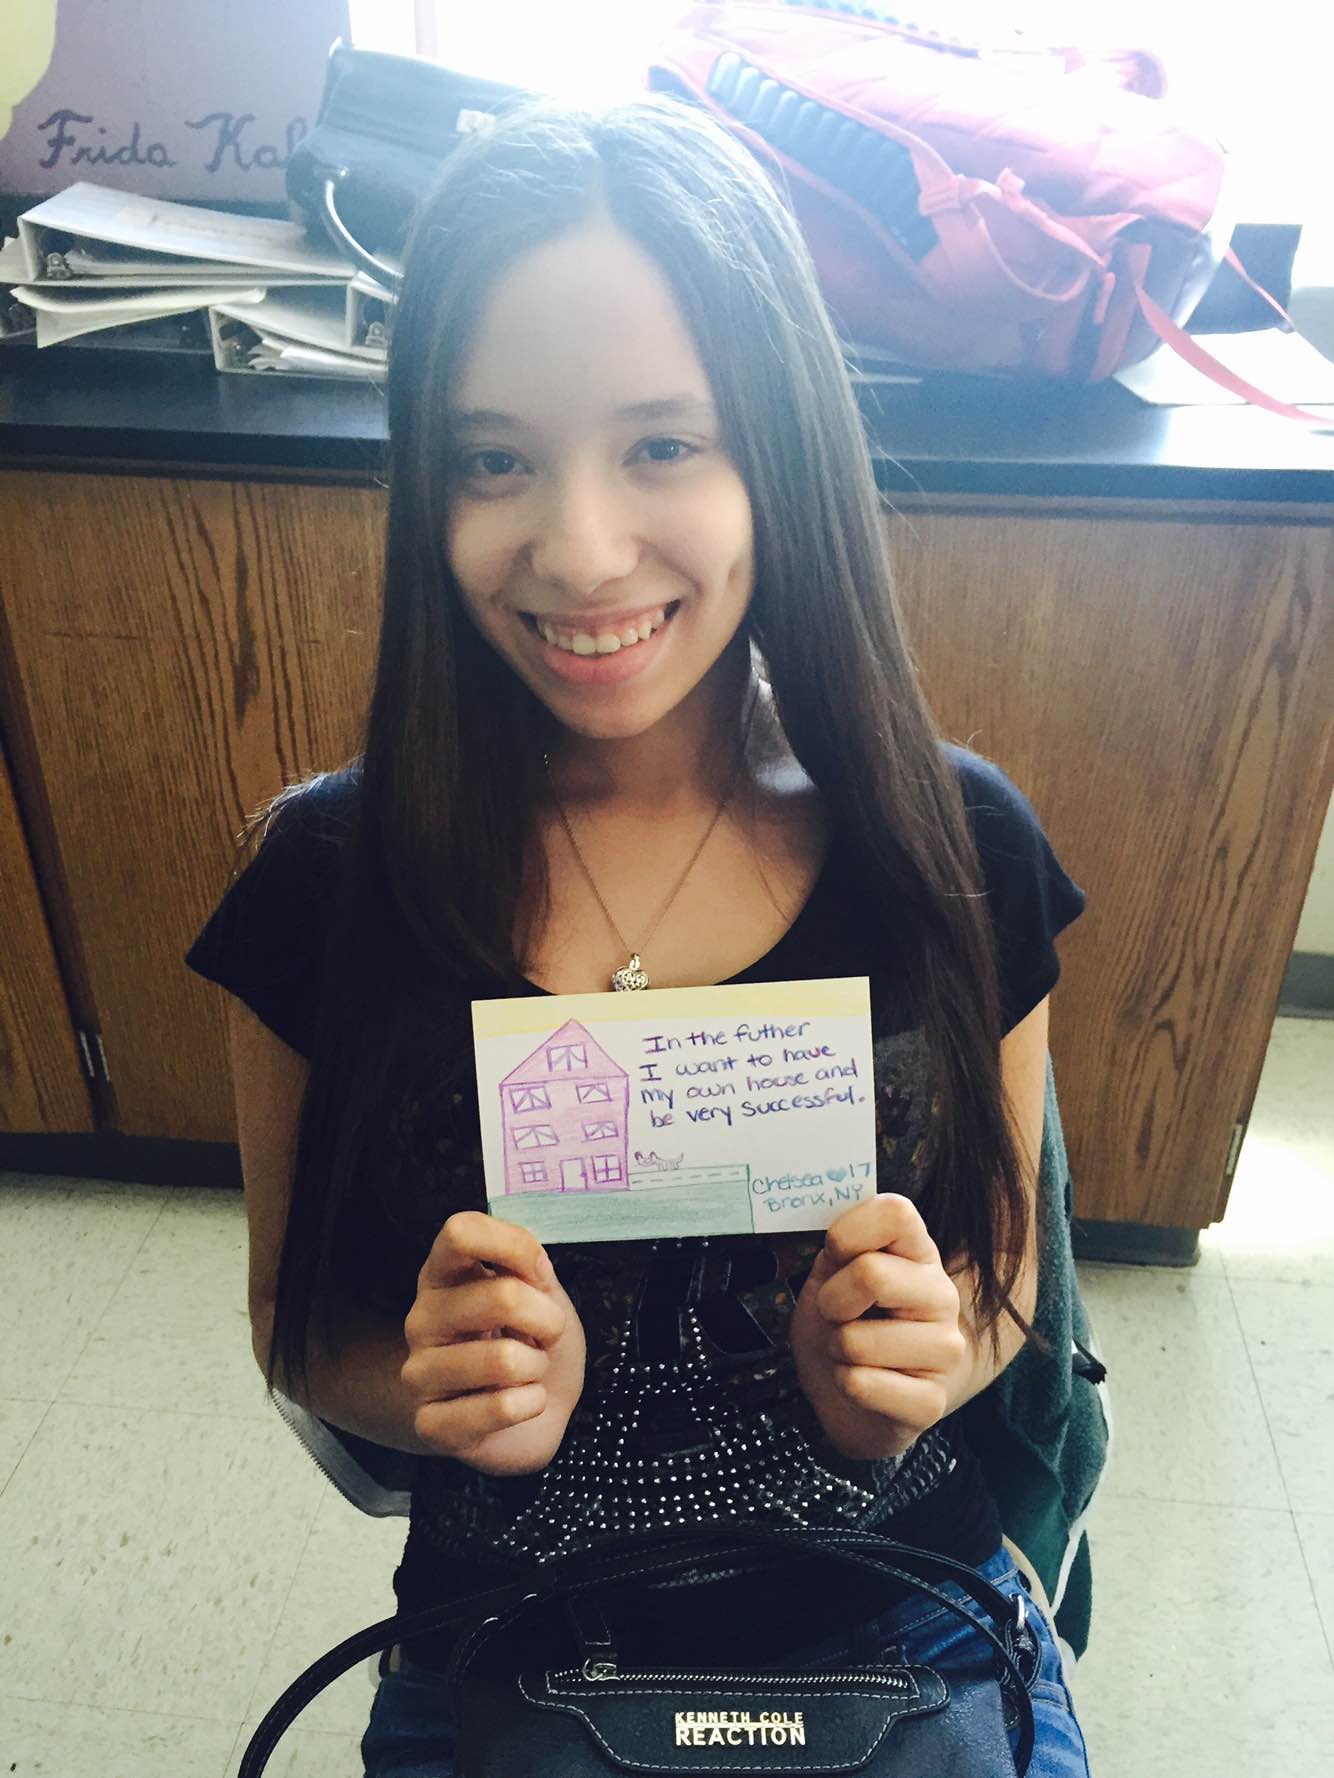 Frida Kahl
In the futher
I want to have
my own house and
be very successful.
Chelsea 17
Bronx, NY
KENNETH COLE
REACTION